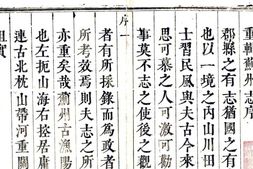 重輯薊州志序
郡縣之有志猶國之有
也以一境之內山川
士習民風與夫古今來
思可慕之人可激可勸
事莫不志之使後之觀
序
一
者有所採錄而為政者
所考效焉則夫志之所
亦重矣哉薊州古漁陽
也左扼山海右控居庸
連古北枕山帶河重關